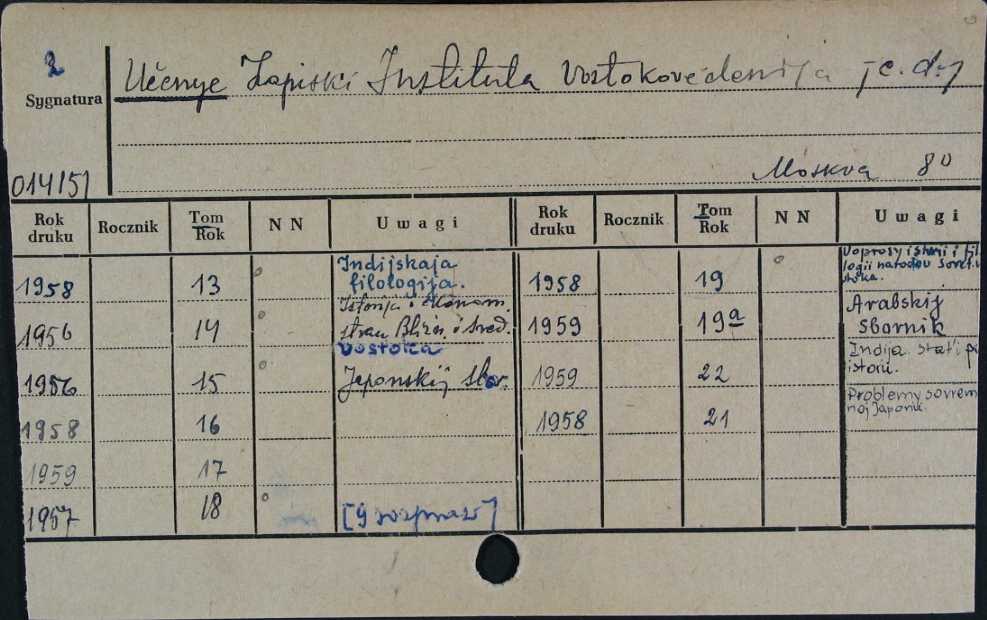 2
Učenye Zapiski Instituta Vostokovedenija [c.d.]
Sygnatura
Moskva 8⁰
014151
Rok druku Rocznik Tom Rok NN Uwagi Rok druku Rocznik Tom Rok NN Uwagi
1958 13 Indijskaja filologija. 1958 19 Voprosy istorii i filologii narodov Sovet. Vostoka.
1956 14 stran Bližn. i Sred. Vostoka 1959 19a Arabskij Sbornik
1956 15 Japonskij sbor. 1959 22 Indija stat'i istorii.
1958 16 1958 21 Problemy sovremennoj Japonii.
1959 17
1957 18 [9 rozpraw]